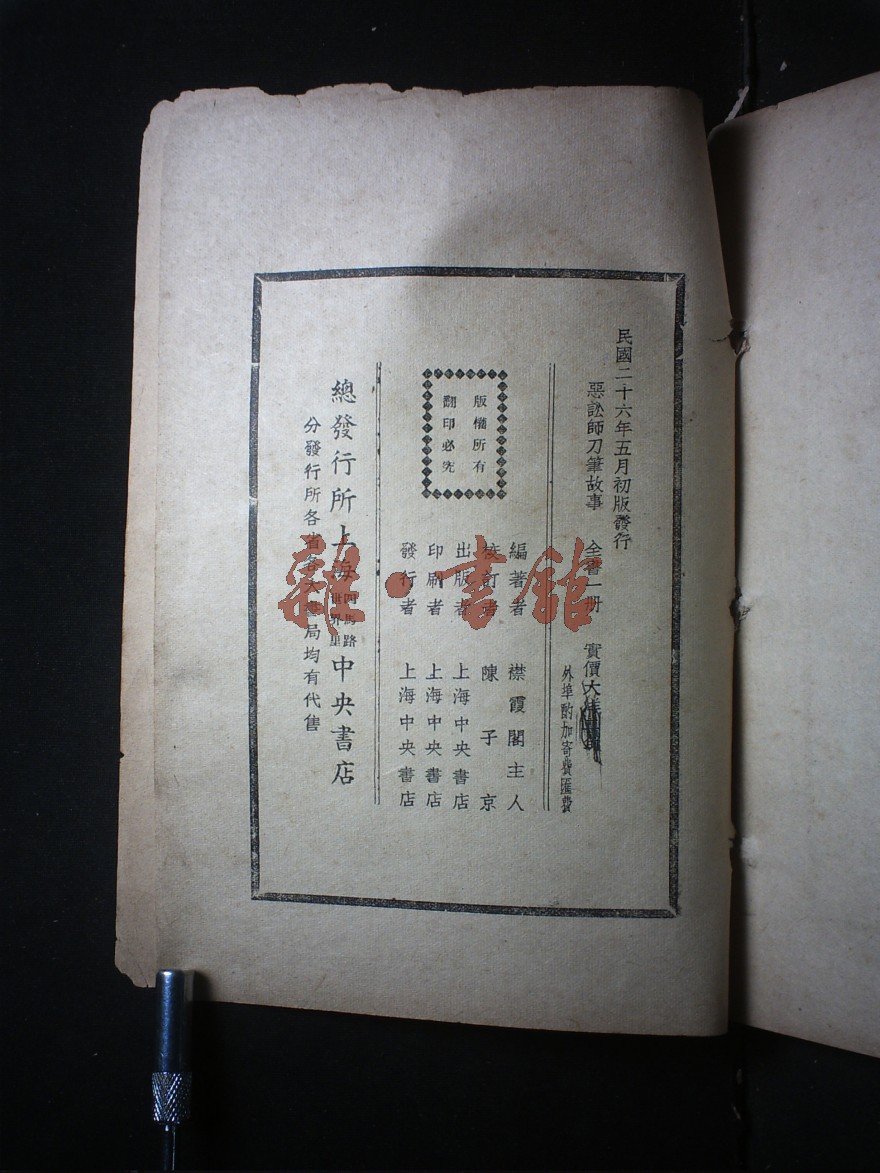 民國二十六年五月初版發行
惡訟師刀筆故事 全書一册 實價大洋
外埠酌加寄費匯費
版權所有
翻印必究
編著者 襟霞閣主人
校訂者 陳子京
出版者 上海中央書店
印刷者 上海中央書店
發行者 上海中央書店
總發行所上海四馬路世界里中央書店
分發行所各省各大書局均有代售
雜·書館